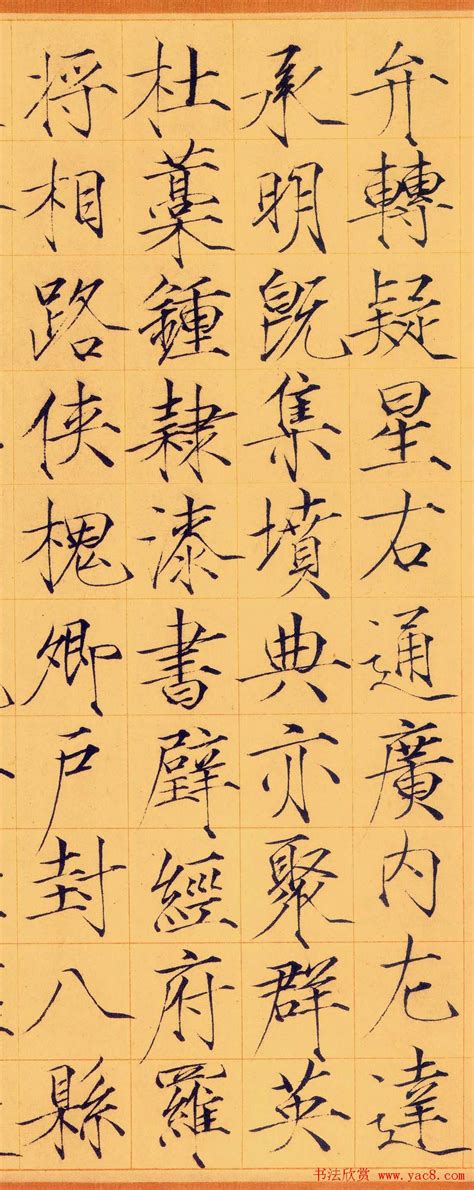 弁轉疑星右通廣内左達
承明既集墳典亦聚群英
杜藁鍾隸漆書壁經府羅
将相路俠槐卿戶封八縣
书法欣赏 www.yac8.com